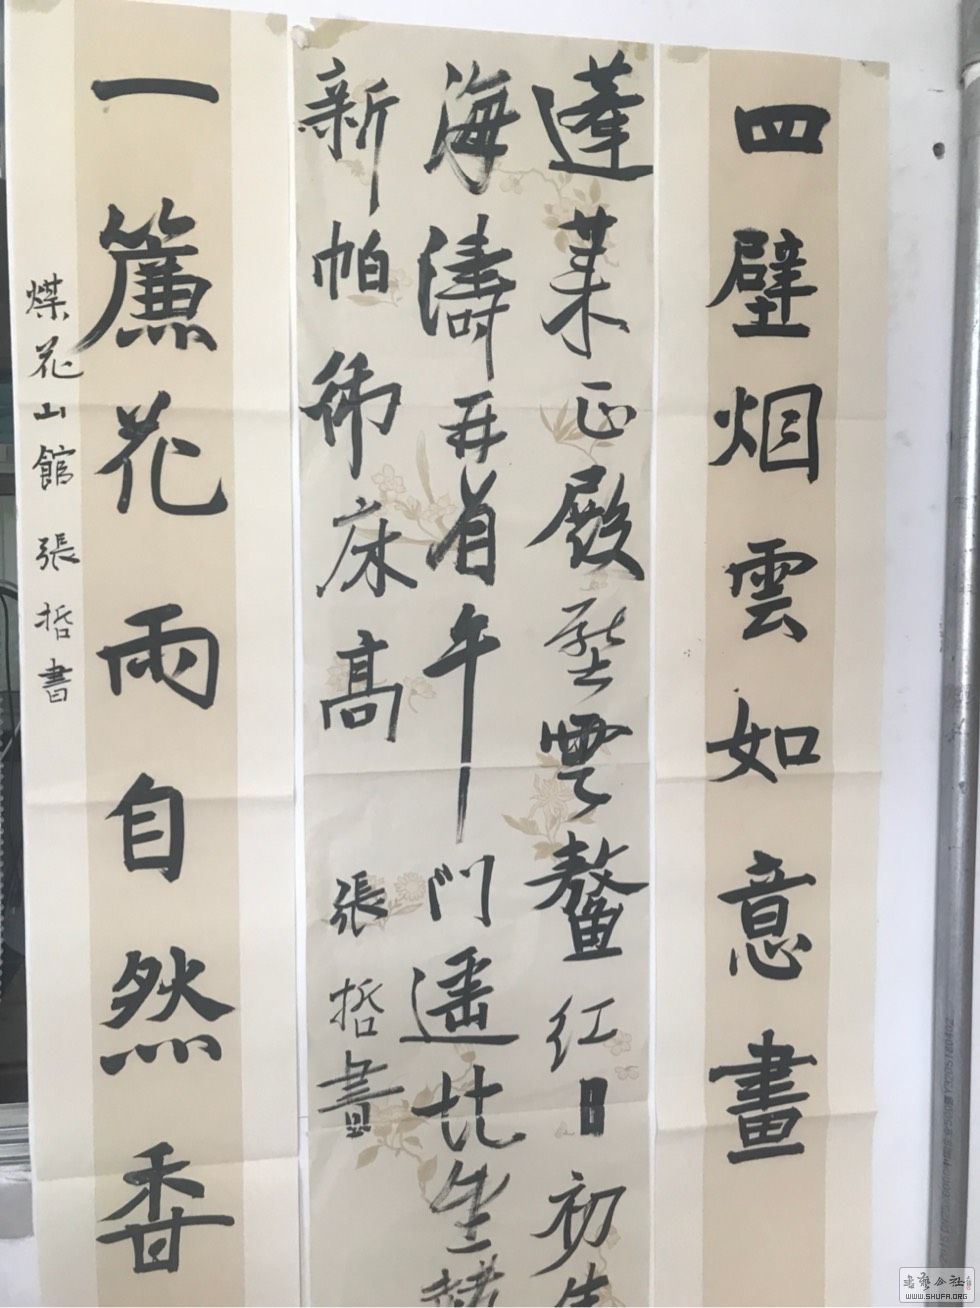 四壁烟雲如意畫
蓬莱正殿壓雲鰲紅日初生
海濤开着午門遥北望赭
新帕御床高 張哲書
一簾花雨自然香
煤花山館 張哲書
書藝公社
WWW.SHUFA.ORG